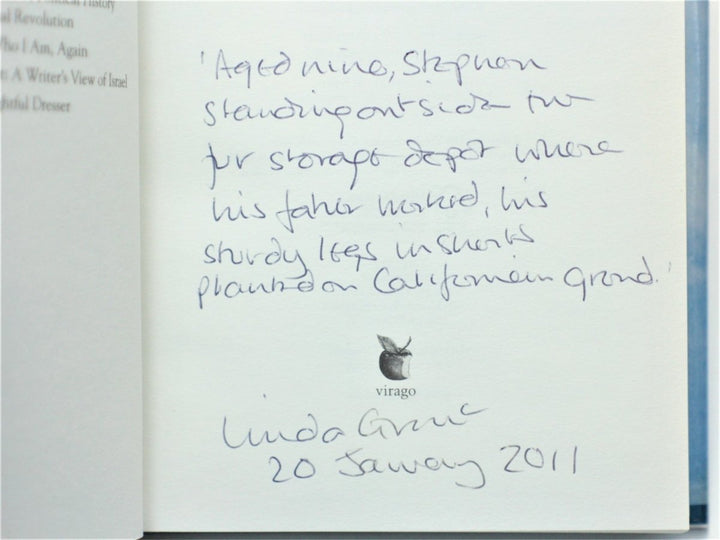 History
al Revolution
Who I Am, Again
: A Writer's View of Israel
ghtful Dresser
'Aged nine, Stephen
standing outside the
fur storage depot where
his father worked, his
sturdy legs in shorts
planted on Californian ground.'
virago
Linda Grant
20 January 2011